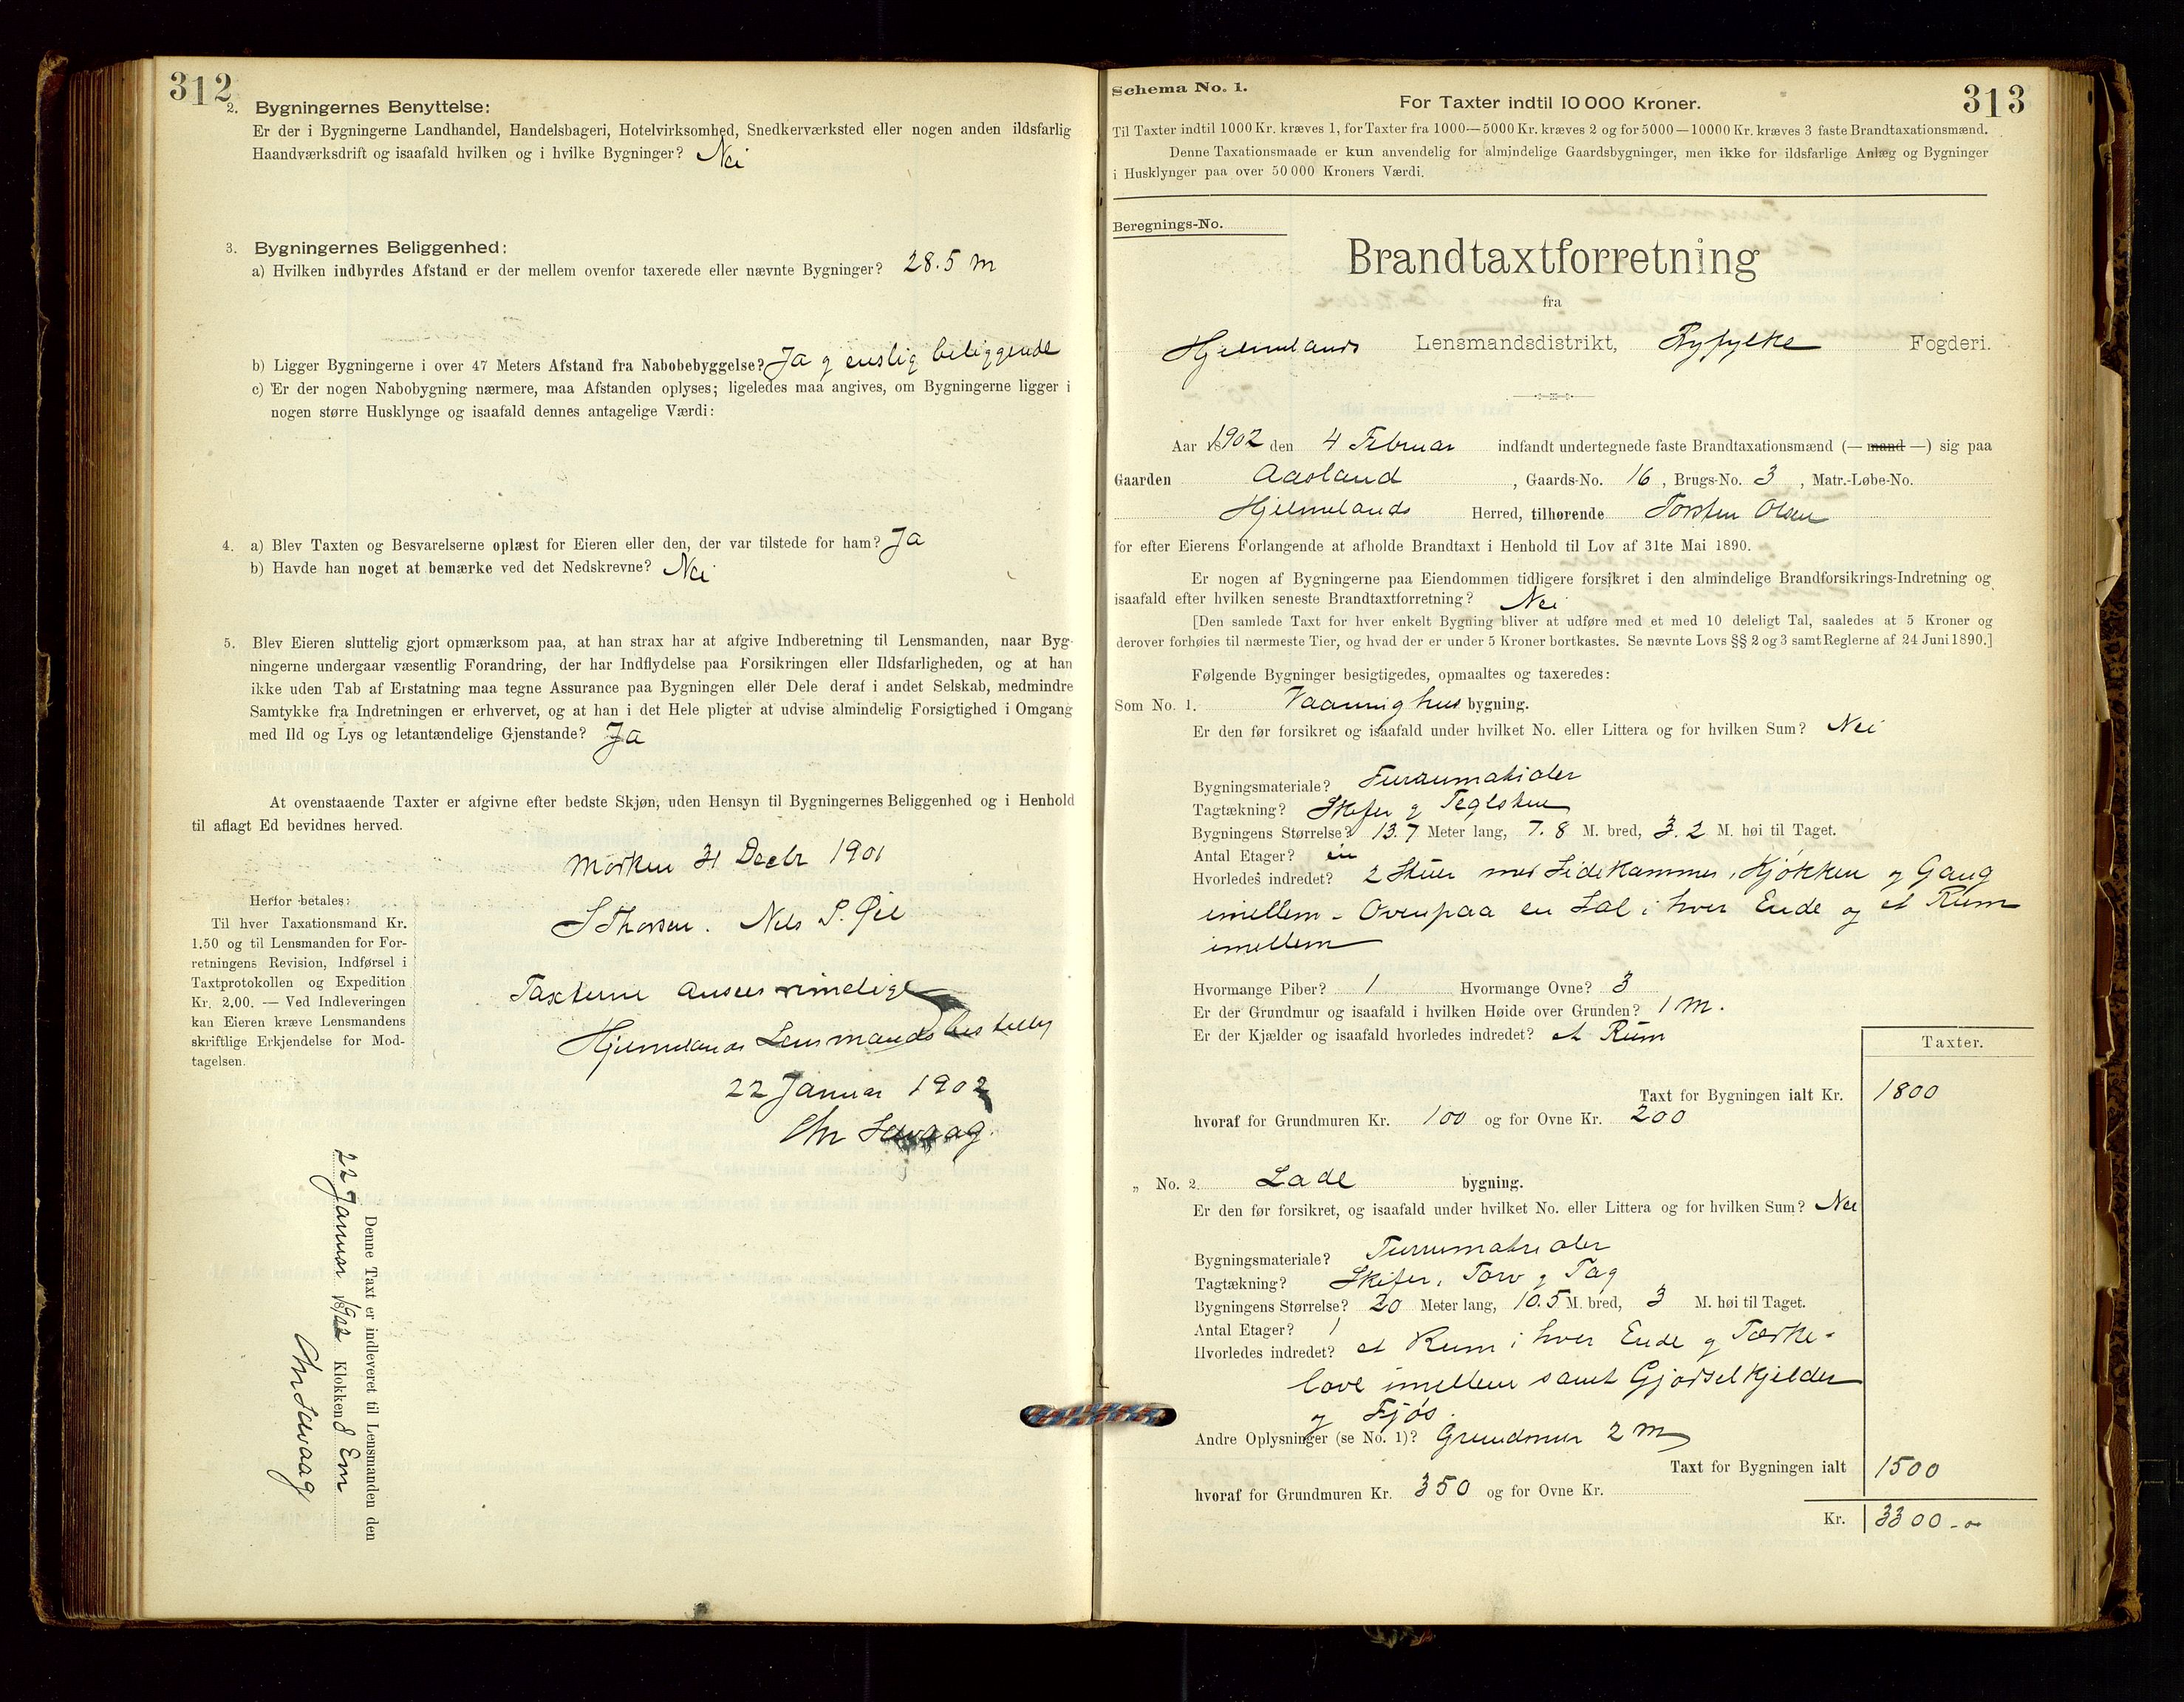 312
2. Bygningernes Benyttelse:
Er der i Bygningerne Landhandel, Handelsbageri, Hotelvirksomhed, Snedkerværksted eller nogen anden ildsfarlig
Haandværksdrift og isaafald hvilken og i hvilke Bygninger? Nei
3. Bygningernes Beliggenhed:
a) Hvilken indbyrdes Afstand er der mellem ovenfor taxerede eller nævnte Bygninger? 28.5 m
b) Ligger Bygningerne i over 47 Meters Afstand fra Nabobebyggelse? Ja og enslig beliggende
c) Er der nogen Nabobygning nærmere, maa Afstanden oplyses; ligeledes maa angives, om Bygningerne ligger i
nogen større Husklynge og isaafald dennes antagelige Værdi:
4. a) Blev Taxten og Besvarelserne oplæst for Eieren eller den, der var tilstede for ham? Ja
b) Havde han noget at bemærke ved det Nedskrevne? Nei
5. Blev Eieren sluttelig gjort opmærksom paa, at han strax har at afgive Indberetning til Lensmanden, naar Byg-
ningerne undergaar væsentlig Forandring, der har Indflydelse paa Forsikringen eller Ildsfarligheden, og at han
ikke uden Tab af Erstatning maa tegne Assurance paa Bygningen eller Dele deraf i andet Selskab, medmindre
Samtykke fra Indretningen er erhvervet, og at han i det Hele pligter at udvise almindelig Forsigtighed i Omgang
med Ild og Lys og letantændelige Gjenstande? Ja
At ovenstaaende Taxter er afgivne efter bedste Skjøn, uden Hensyn til Bygningernes Beliggenhed og i Henhold
til aflagt Ed bevidnes herved.
Mørken 31 Decbr 1901
S Thorsen. Nels S. Øie
Taxterne ansees rimelige
Hjelmelands Lensmandsbestilling
22 Januar 1902
Chr Savaag
Herfor betales:
Til hver Taxationsmand Kr.
1.50 og til Lensmanden for For-
retningens Revision, Indførsel i
Taxtprotokollen og Expedition
Kr. 2.00. — Ved Indleveringen
kan Eieren kræve Lensmandens
skriftlige Erkjendelse for Mod-
tagelsen.
Denne Taxt er indleveret til Lensmanden den
22 Januar 1902 Klokken 8 Em
Chr Savaag
Schema No. 1.
313
For Taxter indtil 10 000 Kroner.
Til Taxter indtil 1000 Kr. kræves 1, for Taxter fra 1000—5000 Kr. kræves 2 og for 5000—10000 Kr. kræves 3 faste Brandtaxationsmænd.
Denne Taxationsmaade er kun anvendelig for almindelige Gaardsbygninger, men ikke for ildsfarlige Anlæg og Bygninger
i Husklynger paa over 50 000 Kroners Værdi.
Beregnings-No.
Brandtaxtforretning
fra
Hjelmelands Lensmandsdistrikt, Ryfylke Fogderi.
Aar 1902 den 4 Februar indfandt undertegnede faste Brandtaxationsmænd (— mand —) sig paa
Gaarden Aasland, Gaards-No. 16, Brugs-No. 3, Matr.-Løbe-No.
Hjelmelands Herred, tilhørende Torsten Olsen
for efter Eierens Forlangende at afholde Brandtaxt i Henhold til Lov af 31te Mai 1890.
Er nogen af Bygningerne paa Eiendommen tidligere forsikret i den almindelige Brandforsikrings-Indretning og
isaafald efter hvilken seneste Brandtaxtforretning? Nei
[Den samlede Taxt for hver enkelt Bygning bliver at udføre med et med 10 deleligt Tal, saaledes at 5 Kroner og
derover forhøies til nærmeste Tier, og hvad der er under 5 Kroner bortkastes. Se nævnte Lovs §§ 2 og 3 samt Reglerne af 24 Juni 1890.]
Følgende Bygninger besigtigedes, opmaaltes og taxeredes:
Som No. 1. Vaaninghus bygning.
Er den før forsikret og isaafald under hvilket No. eller Littera og for hvilken Sum? Nei
Bygningsmateriale? Furumatrialer
Tagtækning? Skifer og Teglsten
Bygningens Størrelse? 13.7 Meter lang, 7.8 M. bred, 3.2 M. høi til Taget.
Antal Etager? en
Hvorledes indredet? 2 Stuer med Sidekammer, Kjøkken og Gang
imellem - Ovenpaa en Sal i hver Ende og et Rum
imellem
Hvormange Piber? 1 Hvormange Ovne? 3
Er der Grundmur og isaafald i hvilken Høide over Grunden? 1 M.
Er der Kjælder og isaafald hvorledes indredet? et Rum
Taxter.
Taxt for Bygningen ialt Kr. 1800
hvoraf for Grundmuren Kr. 100 og for Ovne Kr. 200
„ No. 2. Lade bygning.
Er den før forsikret, og isaafald under hvilket No. eller Littera og for hvilken Sum? Nei
Bygningsmateriale? Furumatrialer
Tagtækning? Skifer, Torv og Tag
Bygningens Størrelse? 20 Meter lang, 10.5 M. bred, 3 M. høi til Taget.
Antal Etager? 1
Hvorledes indredet? et Rum i hver Ende og Tærske-
love imellem samt Gjødselkjelder
og Fjøs.
Andre Oplysninger (se No. 1)? Grundmur 2 m
Taxt for Bygningen ialt 1500
hvoraf for Grundmuren Kr. 350 og for Ovne Kr.
Kr. 3300